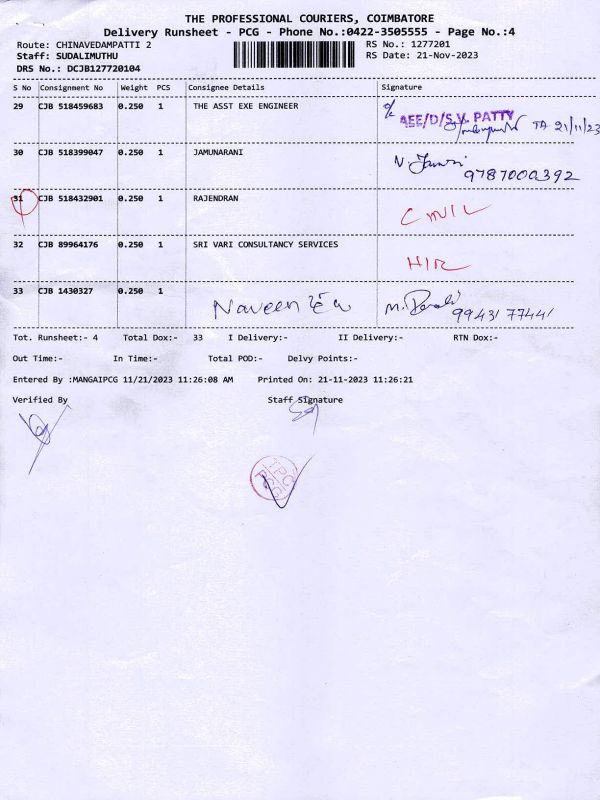 THE PROFESSIONAL COURIERS, COIMBATORE
Delivery Runsheet - PCG - Phone No.:0422-3505555 - Page No.:4
Route: CHINAVEDAMPATTI 2 RS No.: 1277201
Staff: SUDALIMUTHU RS Date: 21-Nov-2023
DRS No.: DCJB127720104
S No Consignment No Weight PCS Consignee Details Signature
29 CJB 518459683 0.250 1 THE ASST EXE ENGINEER AEE/D/S.V. PATTY
TA 21/11/23
30 CJB 518399047 0.250 1 JAMUNARANI
9787000392
31 CJB 518432901 0.250 1 RAJENDRAN
32 CJB 89964176 0.250 1 SRI VARI CONSULTANCY SERVICES
33 CJB 1430327 0.250 1 Naveen
99431 77441
Tot. Runsheet:- 4 Total Dox:- 33 I Delivery:- II Delivery:- RTN Dox:-
Out Time:- In Time:- Total POD:- Delvy Points:-
Entered By :MANGAIPCG 11/21/2023 11:26:08 AM Printed On: 21-11-2023 11:26:21
Verified By Staff Signature